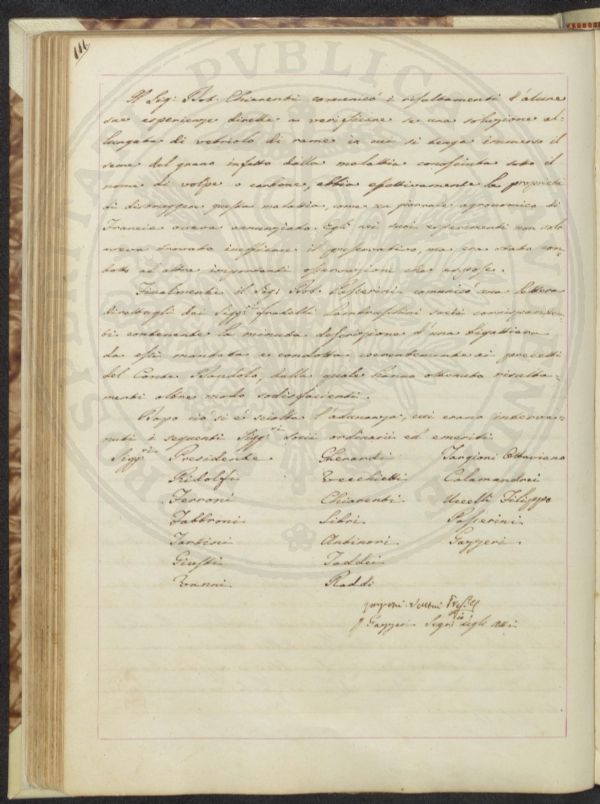 116
Il Sig: Dot. Chiarenti comunicò i risultamenti d'alcune
sue esperienze dirette a verificare se una soluzione al-
lungata di vetriolo di rame in cui si tenga immerso il
seme del grano infetto dalla malattia conosciuta sotto il
nome di volpe o carbone, abbia effettivamente la proprietà
di distruggere questa malattia, come un giornale agronomico di
Francia aveva annunziato. Egli nei suoi esperimenti non solo
aveva trovato inefficace il preservativo, ma era stato con-
dotto ad altre importanti osservazioni che espose.
Finalmente il Sig: Dot. Passerini comunicò una lettera
direttagli dai Sigg.ri fratelli Lambruschini socii corrisponden-
ti contenente la minuta descrizione d'una bigattiera
da essi montata e condotta coerentemente ai precetti
del Conte Dandolo, dalla quale hanno ottenuto risulta-
menti oltre modo sodisfacienti.
Dopo ciò si è sciolta l'adunanza, cui erano interve-
nuti i seguenti Sigg.ri Socii ordinarii ed emeriti.
Sigg.ri Presidente Gherardi Targioni Ottaviano
Ridolfi Vecchietti Calamandrei
Ferroni Chiarenti Uccelli Filippo
Fabbroni Libri Passerini
Tartini Antinori Gazzeri
Giusti Taddei
Vanni Raddi
Pres.te
G. Gazzeri Segr.rio degli Atti
PVBLICA